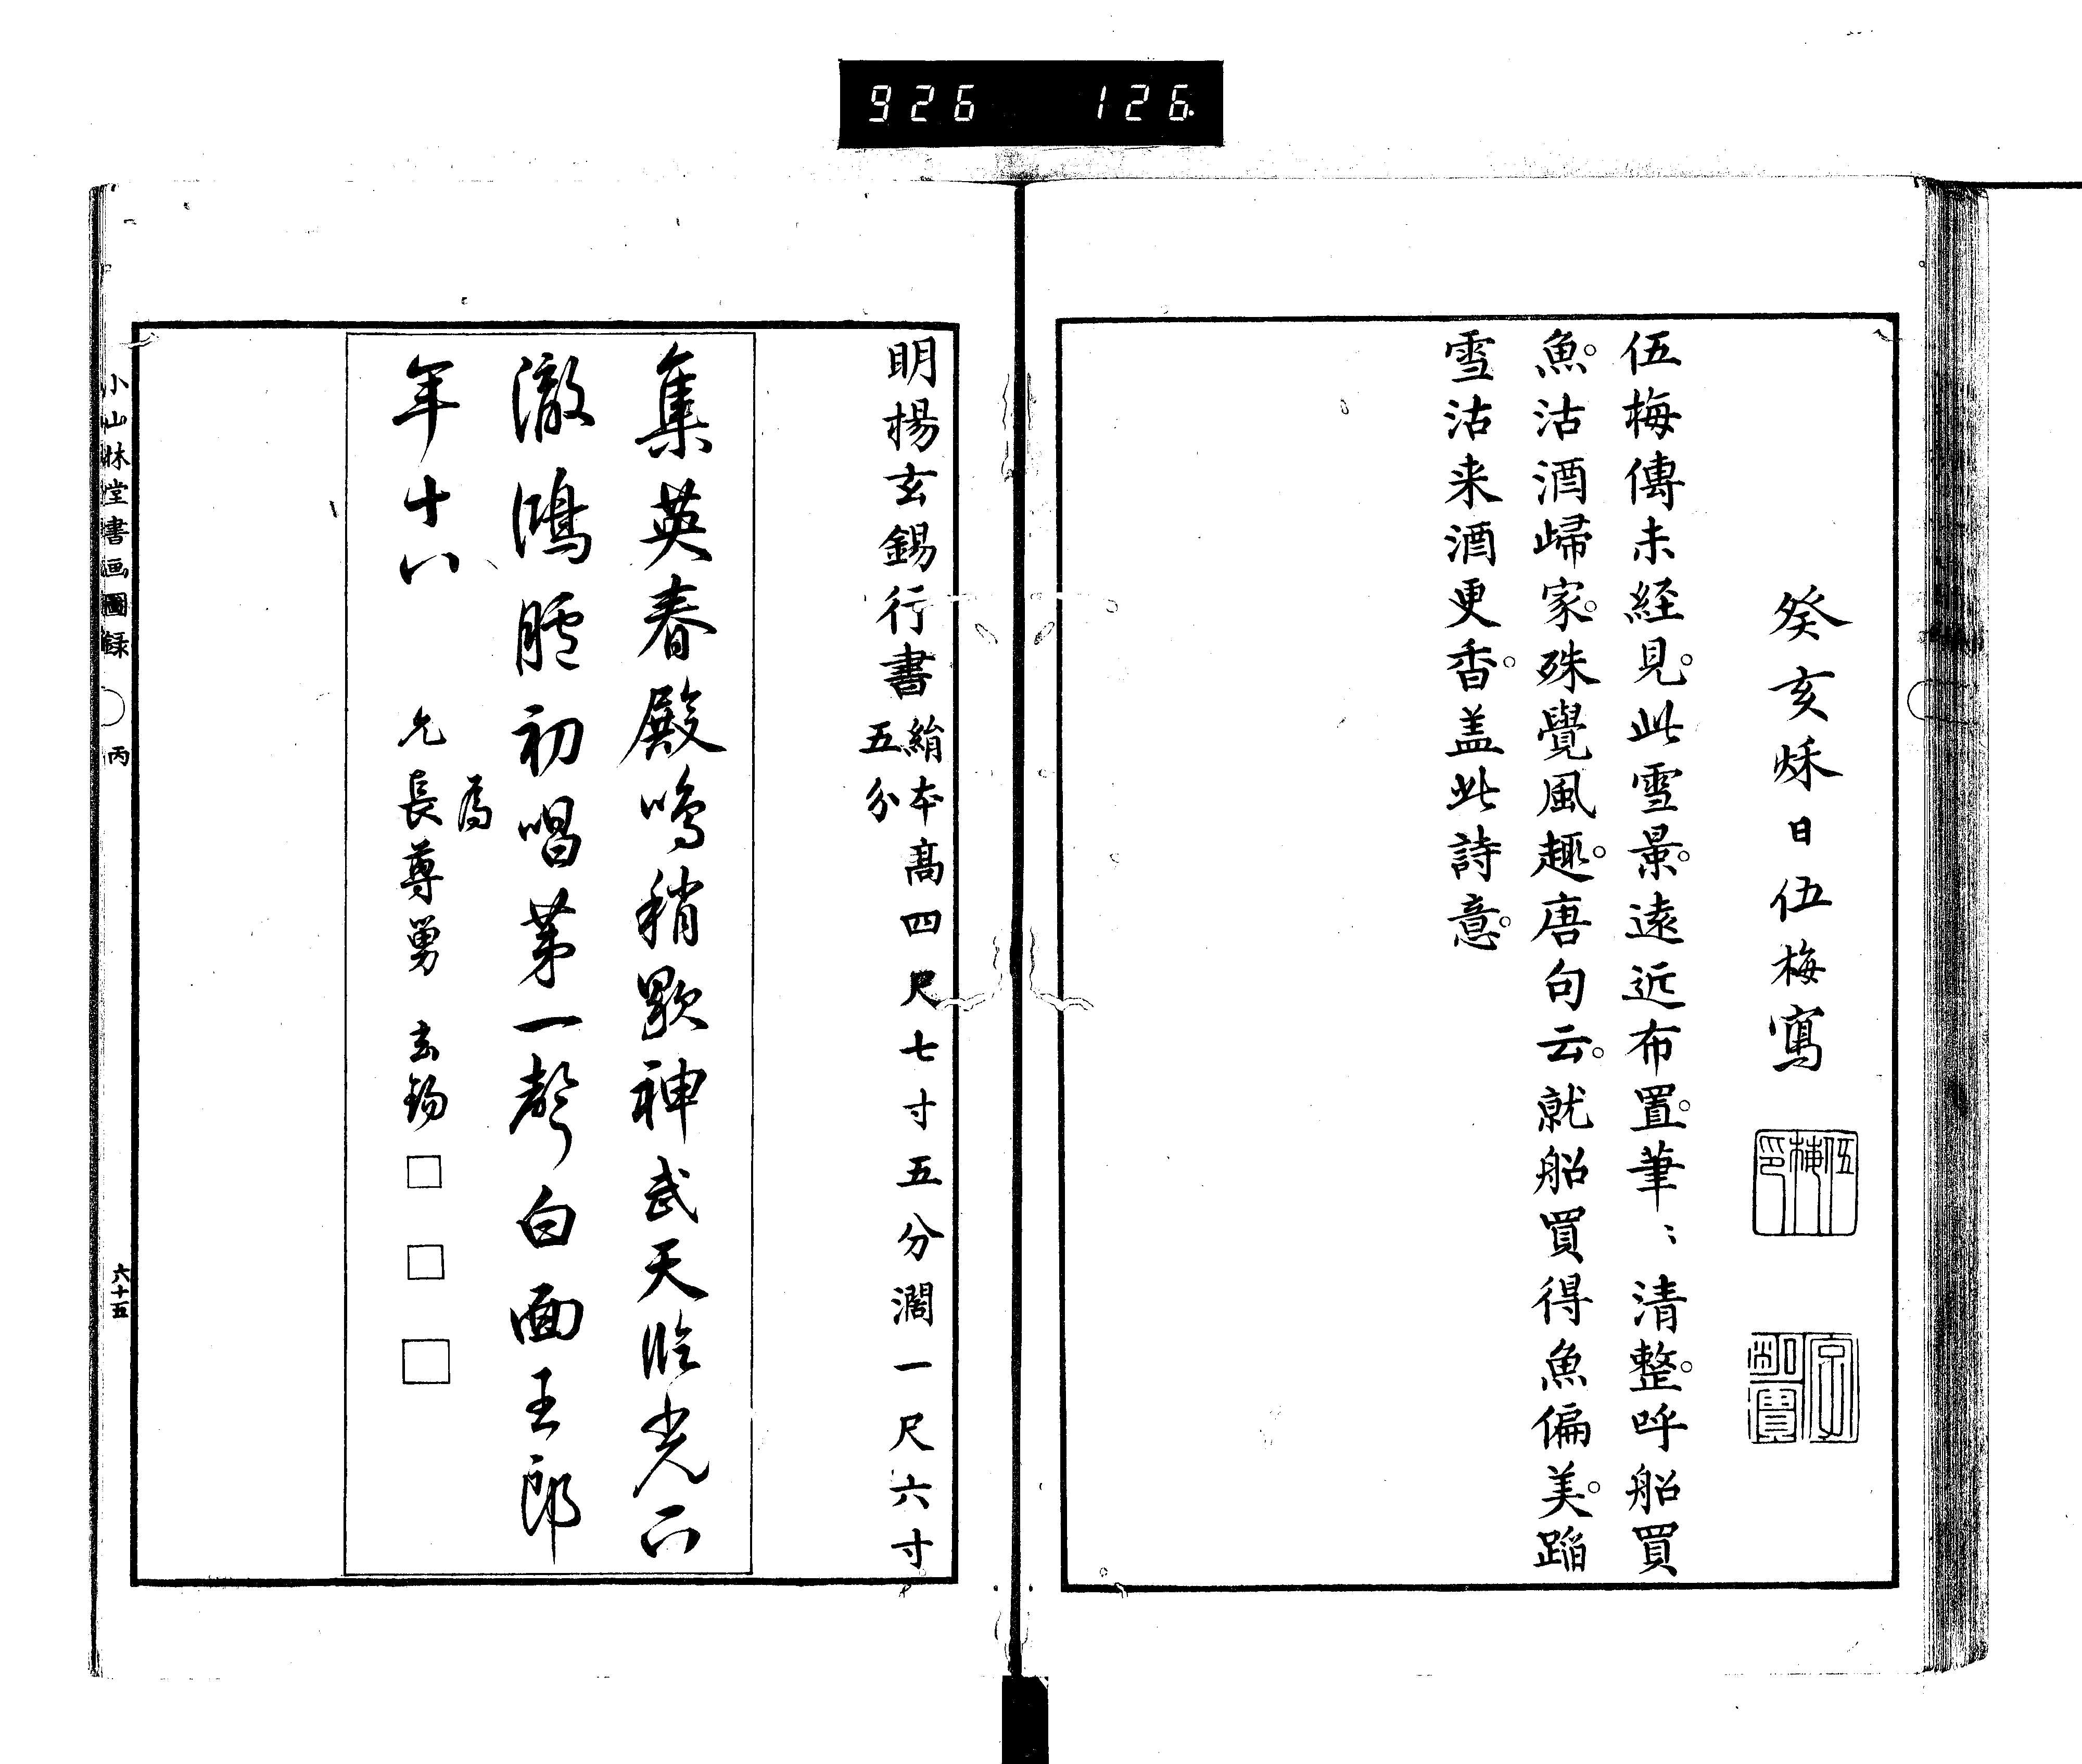 926 126
癸亥秌日伍梅寫
伍梅印
伍梅傳未経見。此雪景。遠近布置。筆〻清整。呼船買
魚。沽酒歸家。殊覺風趣。唐句云。就船買得魚偏美。蹈
雪沽来酒更香。盖此詩意。
明楊玄錫行書絹本高四尺七寸五分濶一尺六寸
五分
集英春殿鳴稍歇神武天臨光下
澈鴻臚初唱第一聲白面王郎
年十八
為
允長尊舅 玄錫
小山林堂書画圖録 丙 六十五